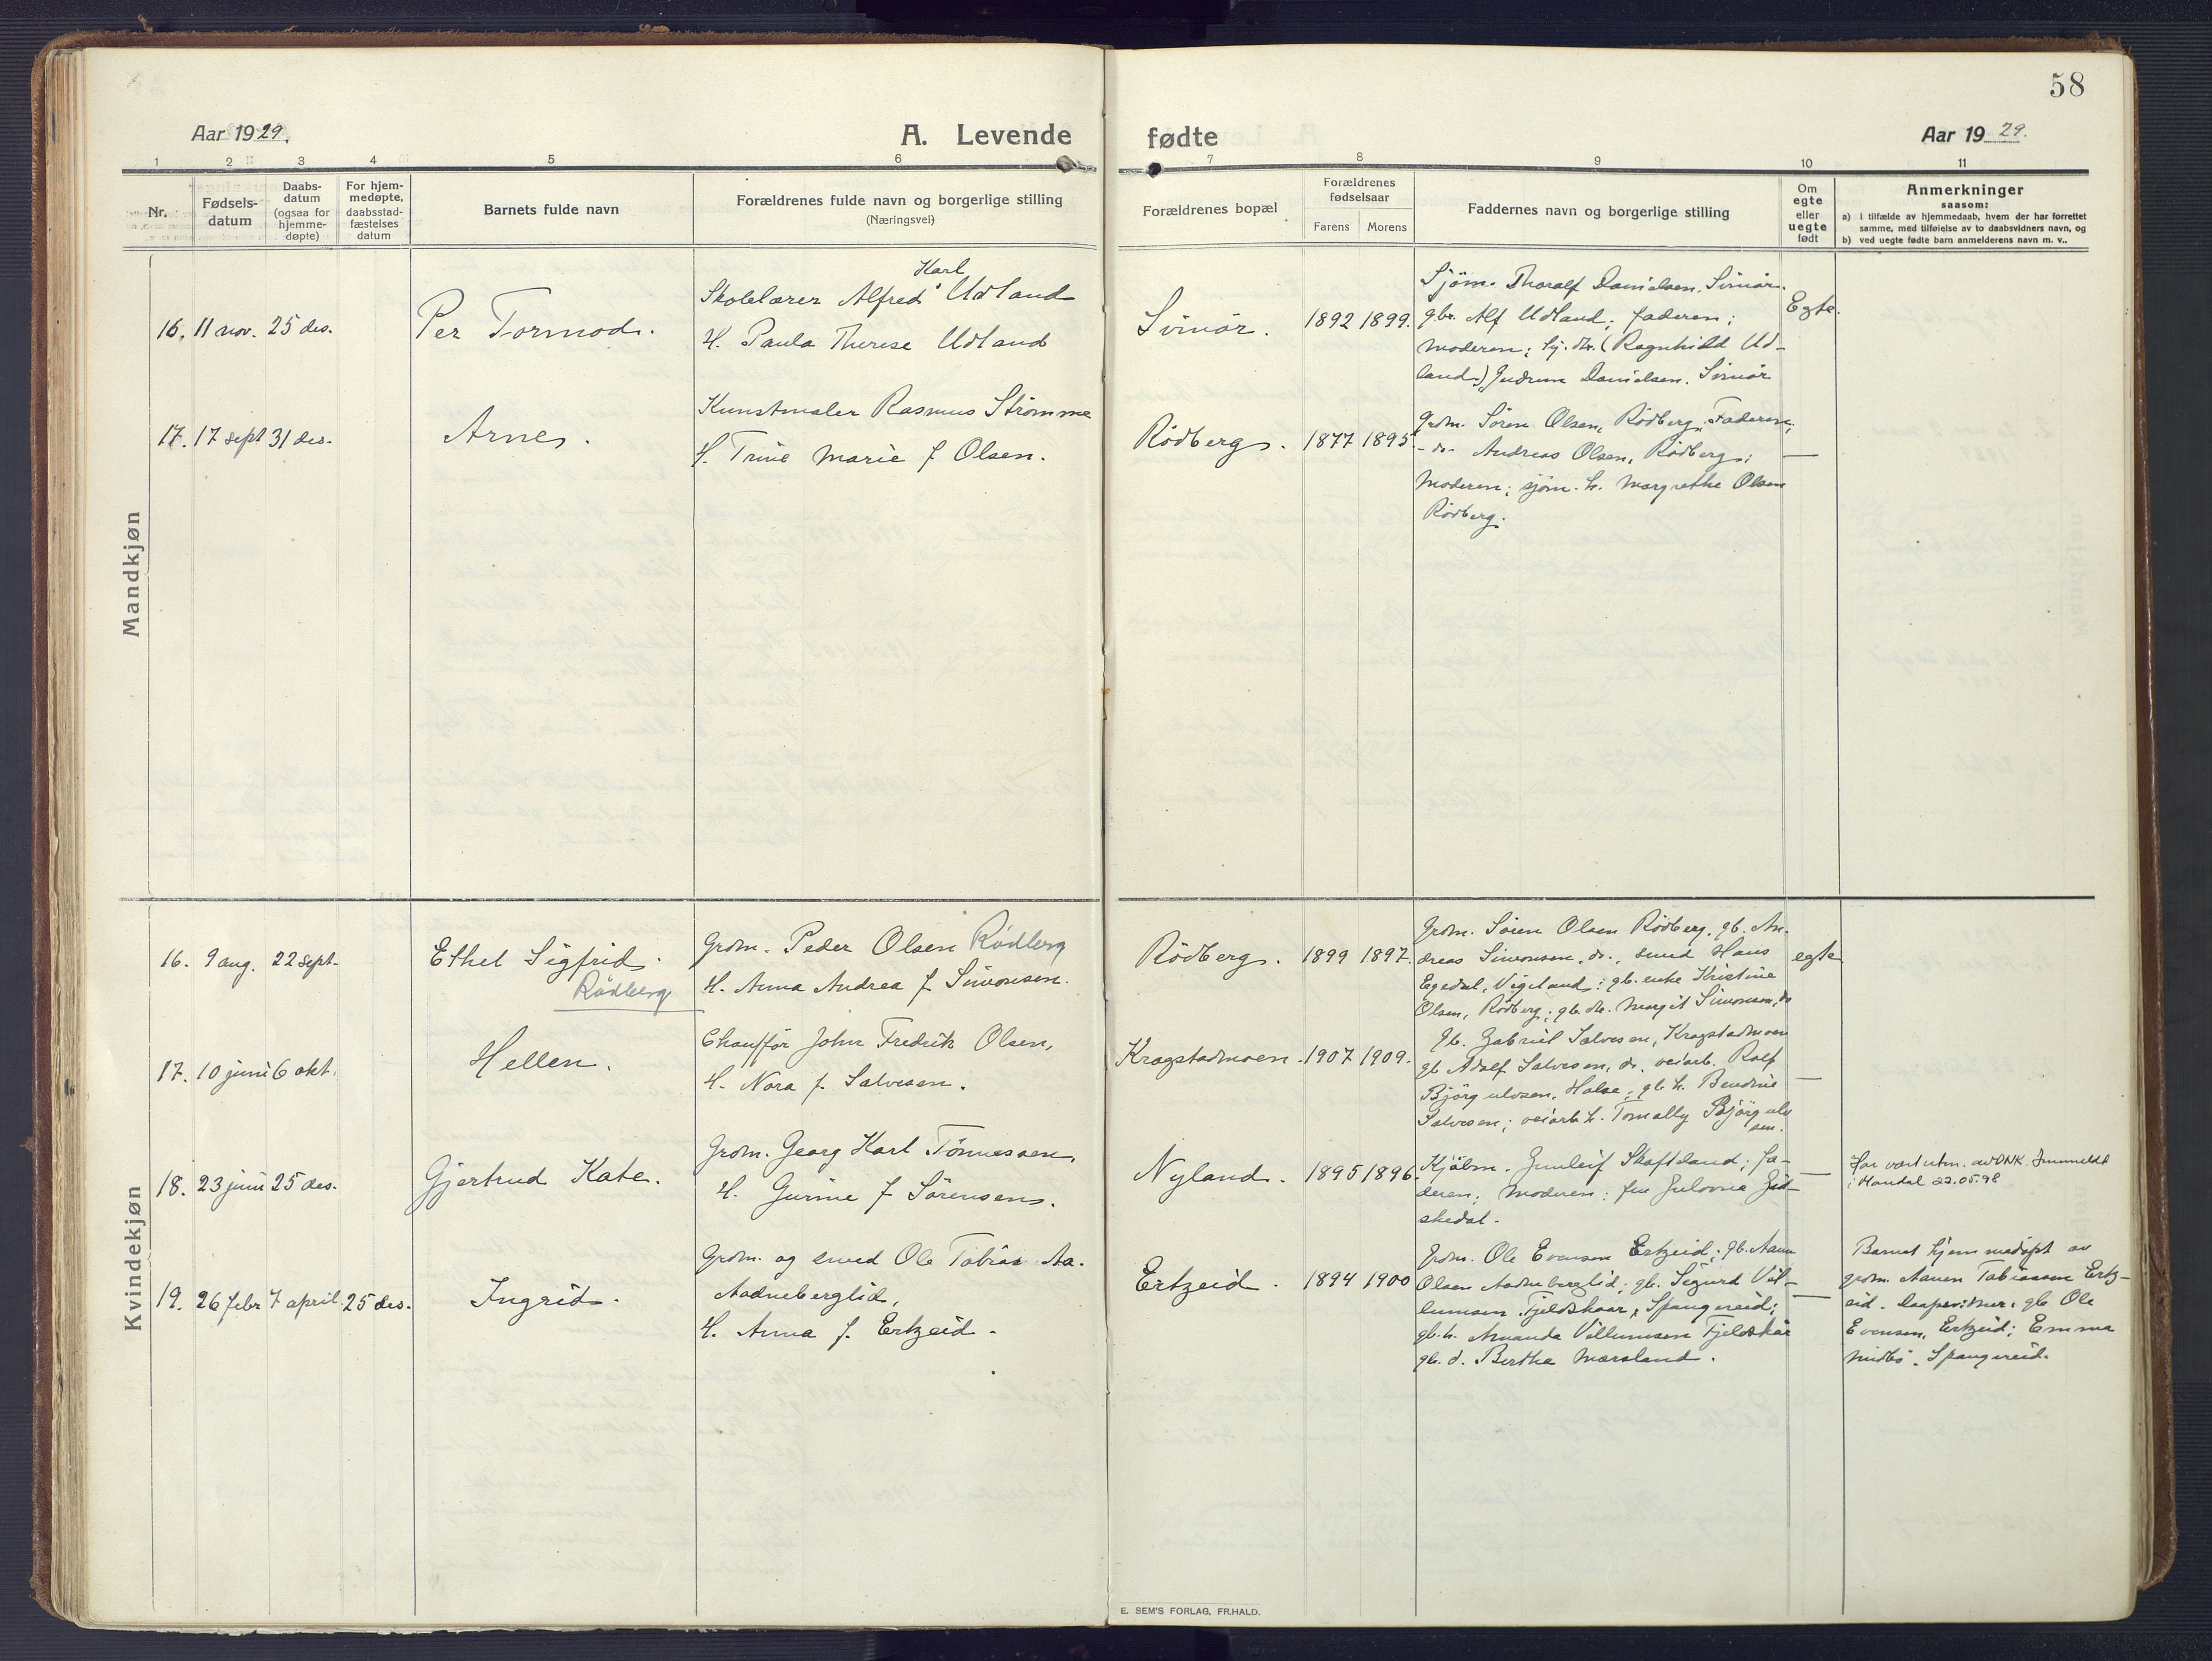 58
Aar 1929.
A. Levende fødte
Aar 1929.
1 2 3 4 5 6 7 8 9 10 11
Nr.
Fødsels-
datum
Daabs-
datum
(ogsaa for
hjemme-
døpte)
For hjem-
medøpte,
daabsstad-
fæstelses
datum
Barnets fulde navn
Forældrenes fulde navn og borgerlige stilling
(Næringsvei)
Forældrenes bopæl
Forældrenes
fødselsaar
Farens Morens
Faddernes navn og borgerlige stilling
Om
egte
eller
uegte
født
Anmerkninger
saasom:
a) i tilfælde av hjemmedaab, hvem der har forrettet
samme, med tilføielse av to daabsvidners navn, og
b) ved uegte fødte barn anmelderens navn m. v..
Mandkjøn
16. 11 nov. 25 des.
Per Tormod.
Karl
Skolelærer Alfred Udland
H. Paula Therese Udland
Svinör.
1892 1899.
Sjöm. Thoralf Danielsen, Svinör.
gbr. Alf Udland; faderen;
moderen; sj. dtr. (Ragnhild Ud-
land.) Gudrun Danielsen. Svinör
Egte.
17. 17 sept 31 des.
Arne.
Kunstmaler Rasmus Strømme
H. Trine Marie f Olsen.
Rödberg.
1877 1895.
Grdm. Sören Olsen, Rödberg; Faderen;
- do- Andreas Olsen, Rödberg;
Moderen; sjöm. h. Margrethe Olsen
Rödberg.
—
Kvindekjøn
16. 9 aug. 22 sept.
Ethel Sigfrid.
Rödberg
Grdm. Peder Olsen Rödberg
H. Anna Andrea f Simonsen.
Rödberg.
1899 1897.
Grdm. Sören Olsen Rödberg, gb. An-
dreas Simonsen, do., smed Hans
Egedal, Vigeland; gb. enke Kristine
Olsen, Rödberg; gb. dtr. Margit Simonsen, do
egte
17. 10 juni 6 okt.
Hellen.
Chauffør John Fredrik Olsen,
H. Nora f. Salvesen.
Kragstadmoen.
1907 1909.
gb. Gabriel Salvesen, Kragstadmoen
gb Adolf Salvesen, do. veiarb. Rolf
Bjørgulvsen, Halse; gb h. Bendine
Salvesen; veiarb. h. Tomally Bjørgulv
sen.
—
18. 23 juni 25 des.
Gjertrud Kate.
Grdm. Georg Karl Tønnessen,
H. Gurine f Sörensen.
Nyland.
1895 1896.
Kjøbm. Gunleif Skofteland; fa-
deren; moderen; fru
skedal.
—
Har vært utm. av DNK. Innmeldt
i Mandal 22.05.98
19. 26 febr 7 april 25 des.
Ingrid.
Grdm. og smed Ole Tobias Aa.
Aadneberglid,
H. Anna f. Ertzeid.
Ertzeid.
1894 1900
Grdm. Ole Evensen Ertzeid; gb. Aanen
Olsen Aadneberglid; gb. Sigurd Vil-
lumsen Fjeldskaar, Spangereid;
gb. h. Amanda Villumsen Fjeldskår
gb. d. Berthe Mørsland.
—
Barnet hjemmedöpt av
grdm. Aanen Tobiassen Ertz-
eid. Daapsvitner: gb Ole
Evensen, Ertzeid; Emma
Midbö, Spangereid.
E. SEM'S FORLAG, FR.HALD.